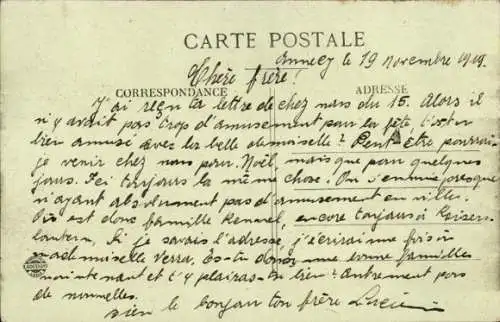 CARTE POSTALE
Annecy le 19 novembre 1919.
Chère frère!
CORRESPONDANCE ADRESSE
J'ai reçu ta lettre de chez nous du 15. Alors il
n'y avait pas trop d'amusement pour la fête, t'es
bien amusé avec les belle demoiselle? Peut-être pourrai-
je venir chez nous pour Noël, mais que pour quelques
jours. Ici toujours la même chose. On s'ennuie presque
n'ayant absolument pas d'amusement en ville.
est donc famille encore toujours à Kaisers-
lautern, Si je savais l'adresse, j'écrirai une fois à
mademoiselle Verra. Es-tu dans une bonne familles
maintenant et t'y plairas-tu bien? Autrement pas
de nouvelles.
bien le bonjour ton frère Lucien